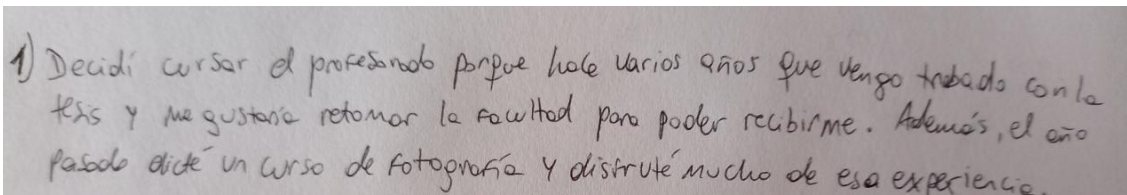 1) Decidí cursar el profesorado porque hace varios años que vengo trabado con la
tesis y me gustaría retomar la facultad para poder recibirme. Además, el año
pasado dicté un curso de fotografía y disfruté mucho de esa experiencia